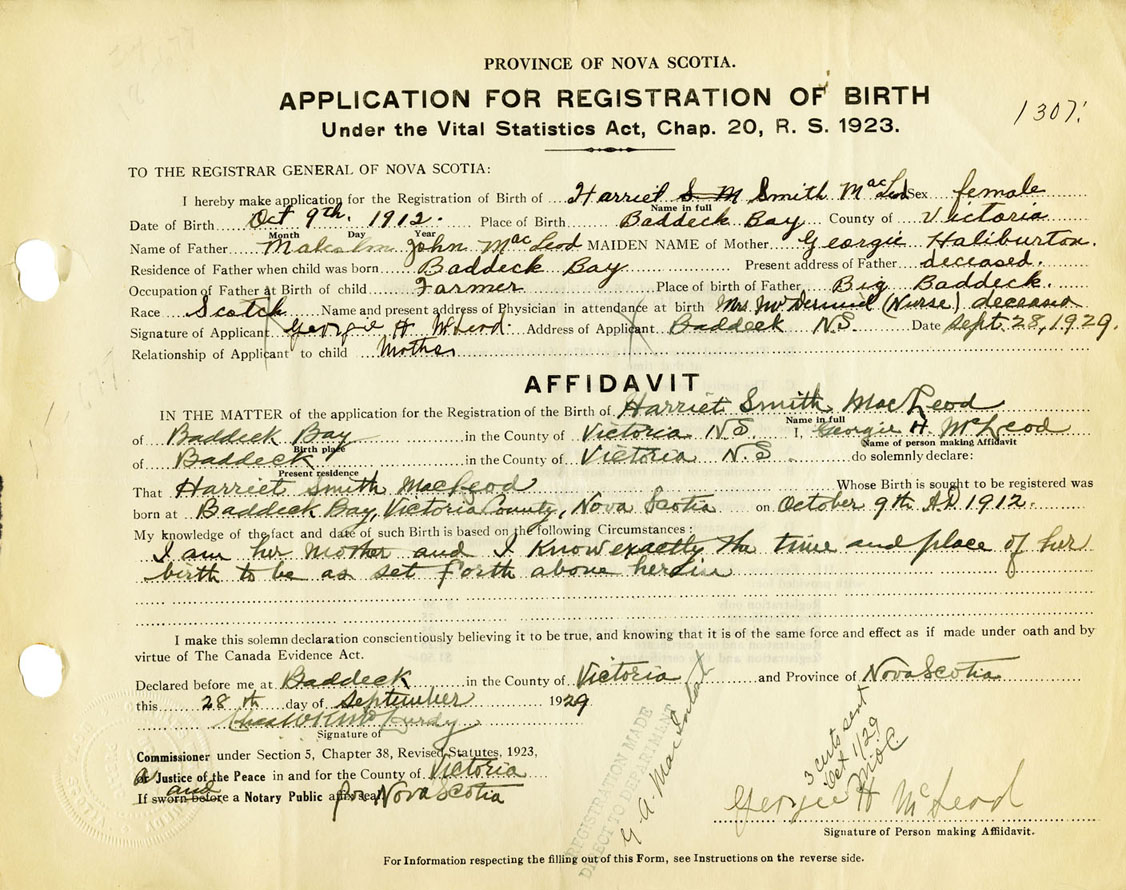 PROVINCE OF NOVA SCOTIA.
APPLICATION FOR REGISTRATION OF BIRTH
1307.
Under the Vital Statistics Act, Chap. 20, R. S. 1923.
TO THE REGISTRAR GENERAL OF NOVA SCOTIA:
I hereby make application for the Registration of Birth of Harriet S. M Smith MacLeod Sex female
Name in full
Date of Birth Oct 9th. 1912. Place of Birth Baddeck Bay County of Victoria
Month Day Year
Name of Father Malcolm John MacLeod MAIDEN NAME of Mother Georgie Haliburton.
Residence of Father when child was born Baddeck Bay Present address of Father deceased.
Occupation of Father at Birth of child Farmer Place of birth of Father Big Baddeck.
Race Scotch Name and present address of Physician in attendance at birth Mrs McDermid (Nurse) deceased
Signature of Applicant Georgie H McLeod. Address of Applicant Baddeck N.S. Date Sept. 28, 1929.
Relationship of Applicant to child Mother
AFFIDAVIT
IN THE MATTER of the application for the Registration of the Birth of Harriet Smith MacLeod
Name in full
of Baddeck Bay in the County of Victoria N.S. I, Georgie H. McLeod
Birth place Name of person making Affidavit
of Baddeck in the County of Victoria N.S. do solemnly declare:
Present residence
That Harriet Smith MacLeod Whose Birth is sought to be registered was
born at Baddeck Bay, Victoria County, Nova Scotia on October 9th A.D 1912.
My knowledge of the fact and date of such Birth is based on the following Circumstances:
I am her Mother and I Know exactly the time and place of her
birth to be as set forth above herein
I make this solemn declaration conscientiously believing it to be true, and knowing that it is of the same force and effect as if made under oath and by
virtue of The Canada Evidence Act.
Declared before me at Baddeck in the County of Victoria and Province of Nova Scotia
this 28th day of September 1929
Signature of
Commissioner under Section 5, Chapter 38, Revised Statutes, 1923,
or Justice of the Peace in and for the County of Victoria
and
If sworn before a Notary Public affix seal for Nova Scotia
REGISTRATION MADE
DIRECT TO DEPARTMENT
3 certs sent
Oct 1/29
Georgie H McLeod
Signature of Person making Affidavit.
For Information respecting the filling out of this Form, see Instructions on the reverse side.